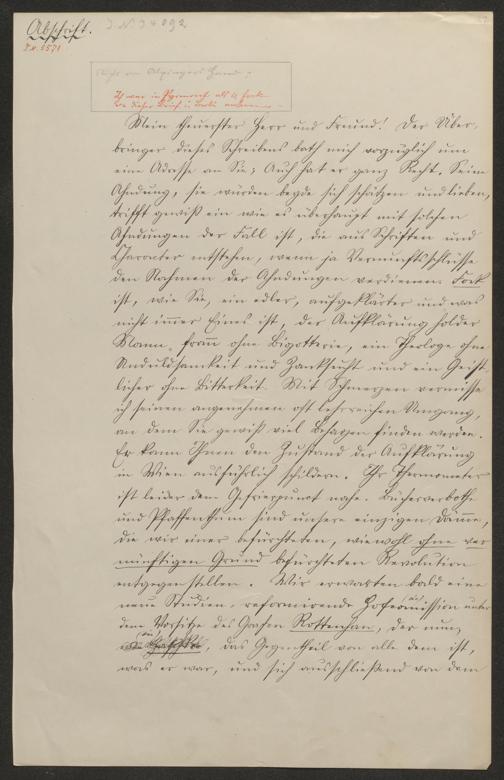 Abschrift.
J. N. 34092
J. N. 6571
Nicht von Alxingers Hand.
Mein theuerster Herr und Freund! Der Über-
bringer dieses Schreibens bath mich vorzüglich um
eine Adresse an Sie; Auch hat er ganz Recht. Seine
Ahndung, sie würden beyde sich schätzen und lieben,
trifft gewiß ein wie es überhaupt mit solchen
Ahndungen der Fall ist, die aus Schriften und
Character entstehen, wenn ja Vernunftschlüsse
den Nahmen der Ahndungen verdienen. Fock
ist, wie Sie, ein edler, aufgeklärter und was
nicht immer Eines ist, der Aufklärung holder
Mann, fromm ohne Bigotterie, ein Theologe ohne
Unduldsamkeit und Zanksucht und ein Geist-
licher ohne Bitterkeit. Mit Schmerzen vermisse
ich seinen angenehmen oft lehrreichen Umgang,
an dem Sie gewiß viel Behagen finden werden.
Er kann Ihnen den Zustand der Aufklärung
in Wien ausführlich schildern. Ihr Thermometer
ist leider dem Gefrierpunct nahe. Bücherverbothe
und Pfaffenthum sind unsere einzigen Dämme,
die wir einer befürchteten, wiewohl ohne ver-
nünftigen Grund befürchteten Revolution
entgegen stellen. Wir erwarten bald eine
neue Studien-reformirende Hofcommission unter
dem Vorsitze des Grafen Rottenhan, der nun,
das Gegentheil von alle dem ist,
was er war, und sich ausschließend von dem